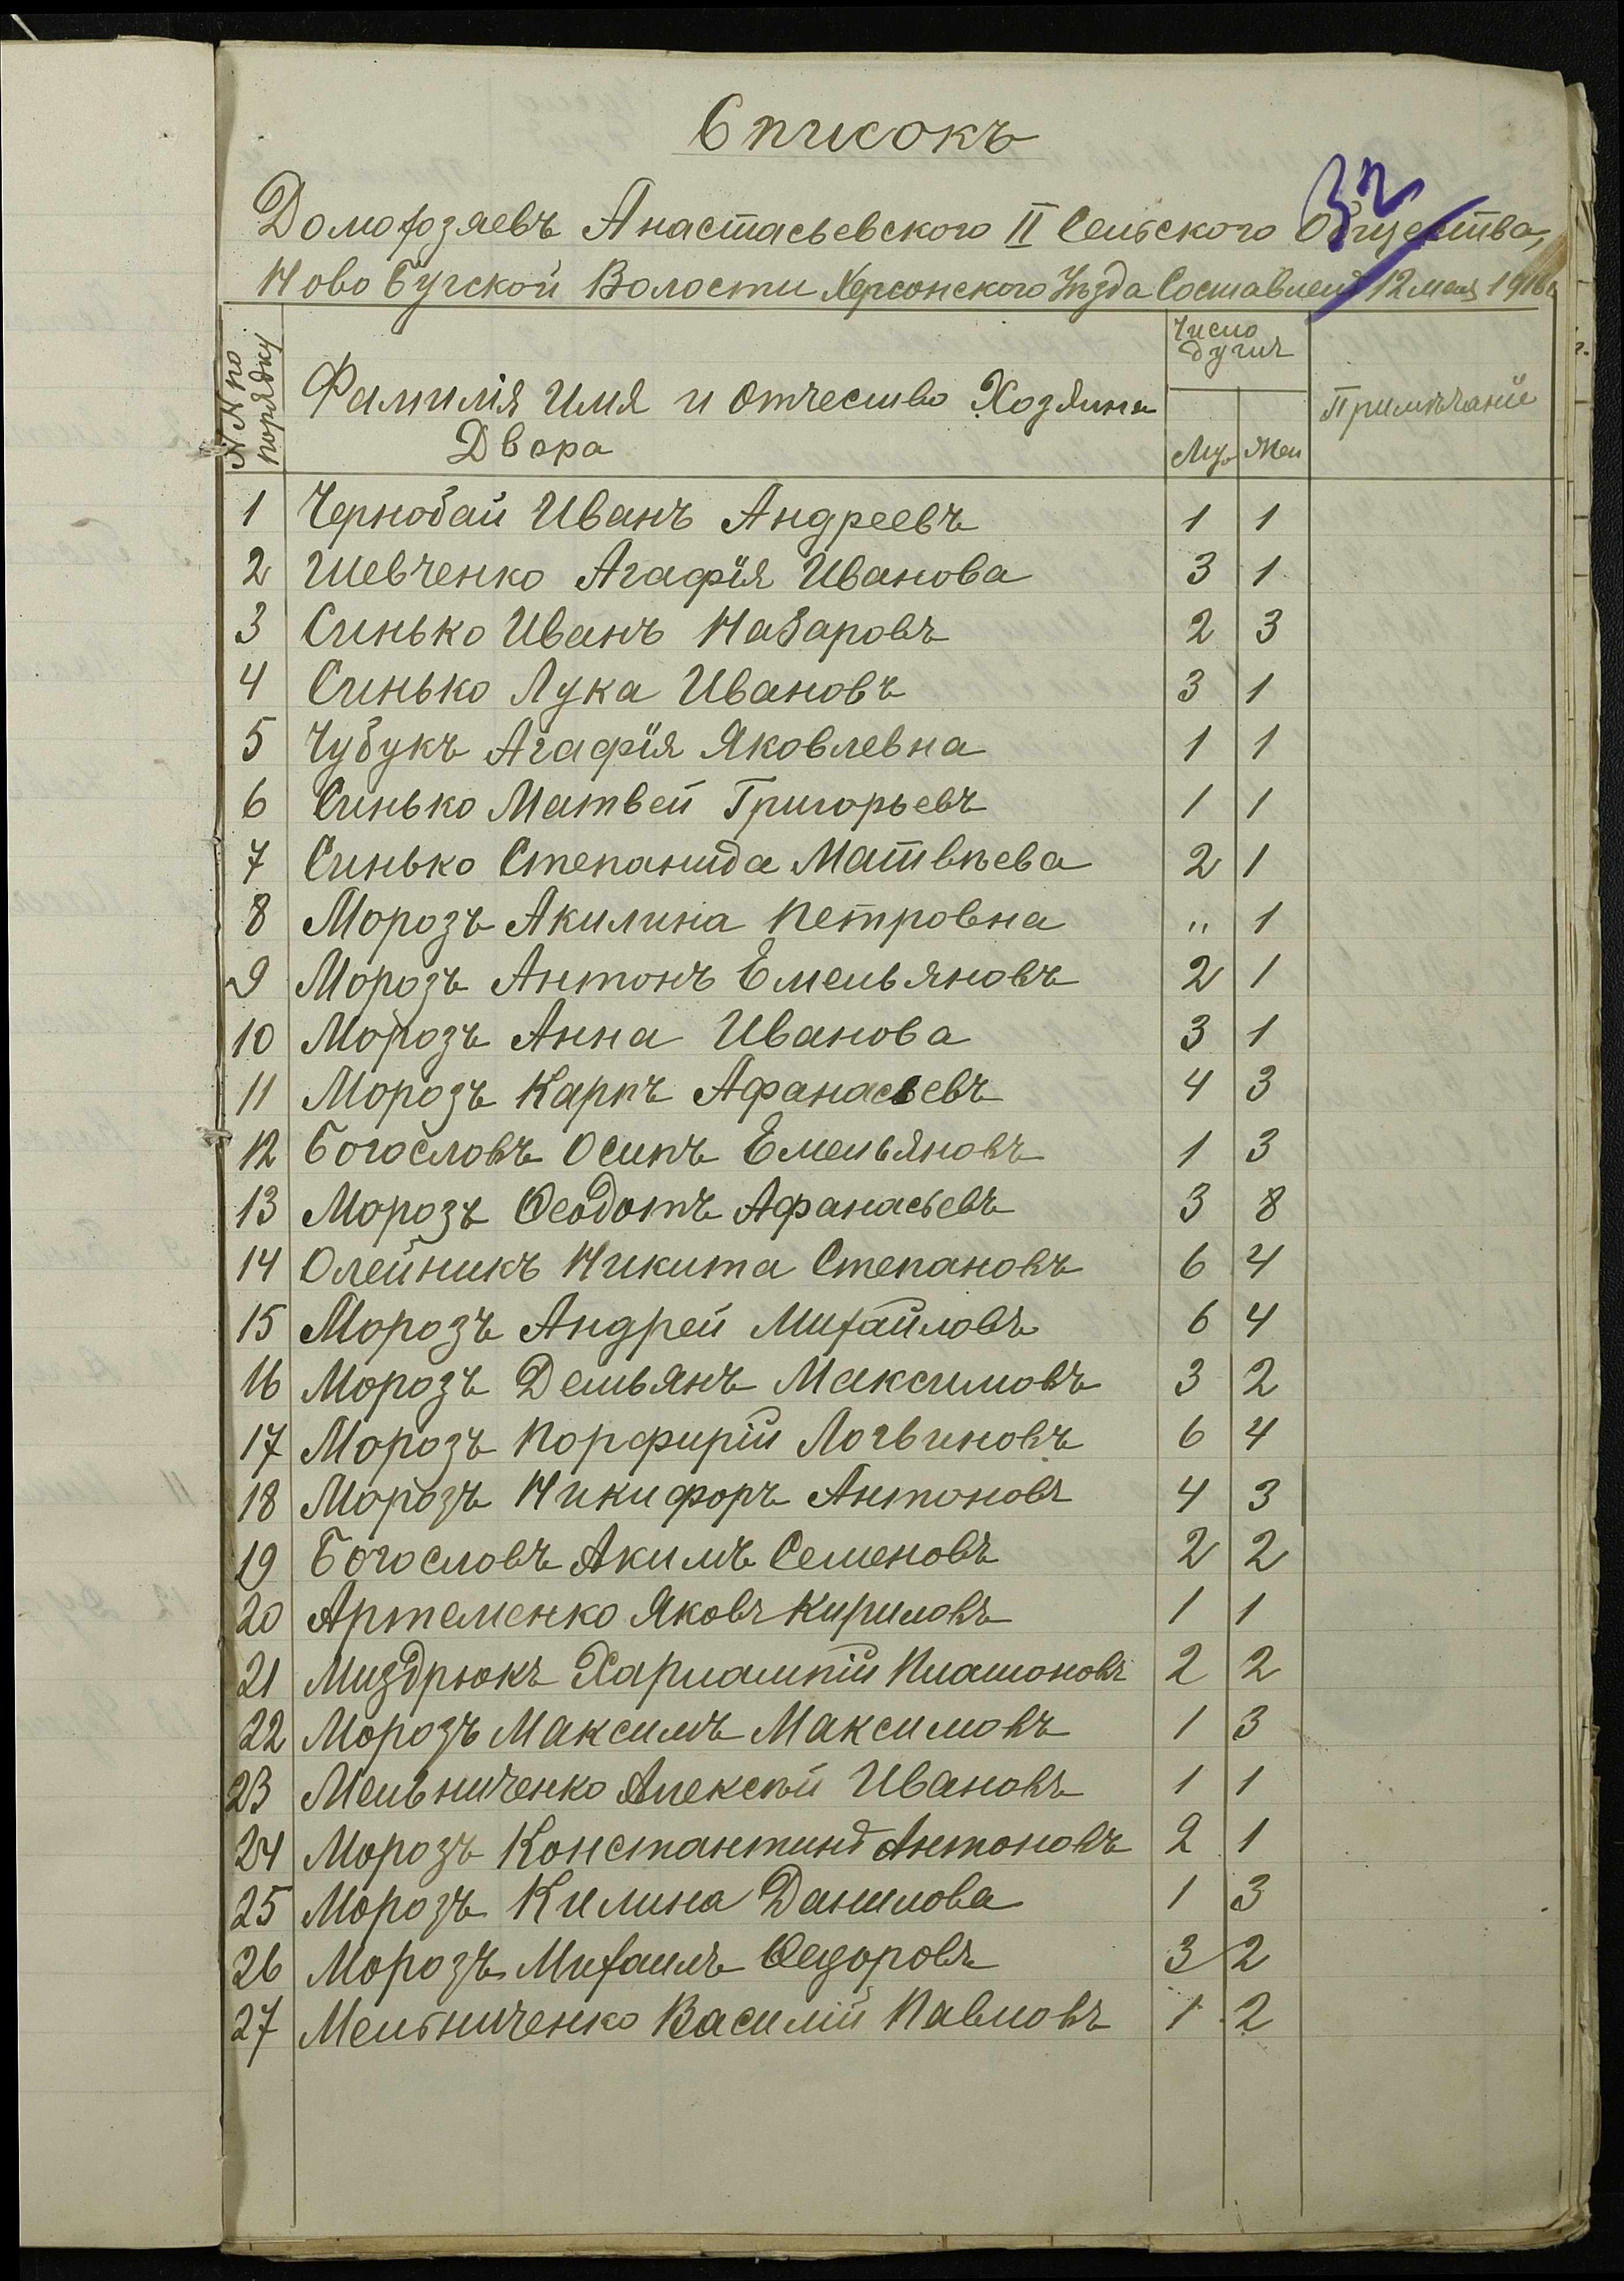 Списокъ
32
Домохозяевъ Анастасьевского II Сельского Общества,
Ново Бугской Волости Херсонского Уѣзда Составленъ 12 мая 1916
№№ по порядку
Фамилія Имя и Отчество Хозяина Двора
Число душъ
Муж Жен
Примѣчаніе
1 Чернобай Иванъ Андреевъ 1 1
2 Шевченко Агафія Иванова 3 1
3 Синько Иванъ Назаровъ 2 3
4 Синько Лука Ивановъ 3 1
5 Чубукъ Агафія Яковлевна 1 1
6 Синько Матвей Григорьевъ 1 1
7 Синько Степанида Матвѣева 2 1
8 Морозъ Акилина Петровна " 1
9 Морозъ Антонъ Емельяновъ 2 1
10 Морозъ Анна Иванова 3 1
11 Морозъ Карпъ Афанасьевъ 4 3
12 Богословъ Осипъ Емельяновъ 1 3
13 Морозъ Ѳеодотъ Афанасьевъ 3 8
14 Олейникъ Никита Степановъ 6 4
15 Морозъ Андрей Михайловъ 6 4
16 Морозъ Демьянъ Максимовъ 3 2
17 Морозъ Порфирій Логвиновъ 6 4
18 Морозъ Никифоръ Антоновъ 4 3
19 Богословъ Акимъ Семеновъ 2 2
20 Артеменко Яковъ Кириловъ 1 1
21 Миздрюкъ Харлампій Платоновъ 2 2
22 Морозъ Максимъ Максимовъ 1 3
23 Мельниченко Алексѣй Ивановъ 1 1
24 Морозъ Константинъ Антоновъ 2 1
25 Морозъ Килина Данилова 1 3
26 Морозъ Михаилъ Ѳедоровъ 3 2
27 Мельниченко Василій Павловъ 1 2